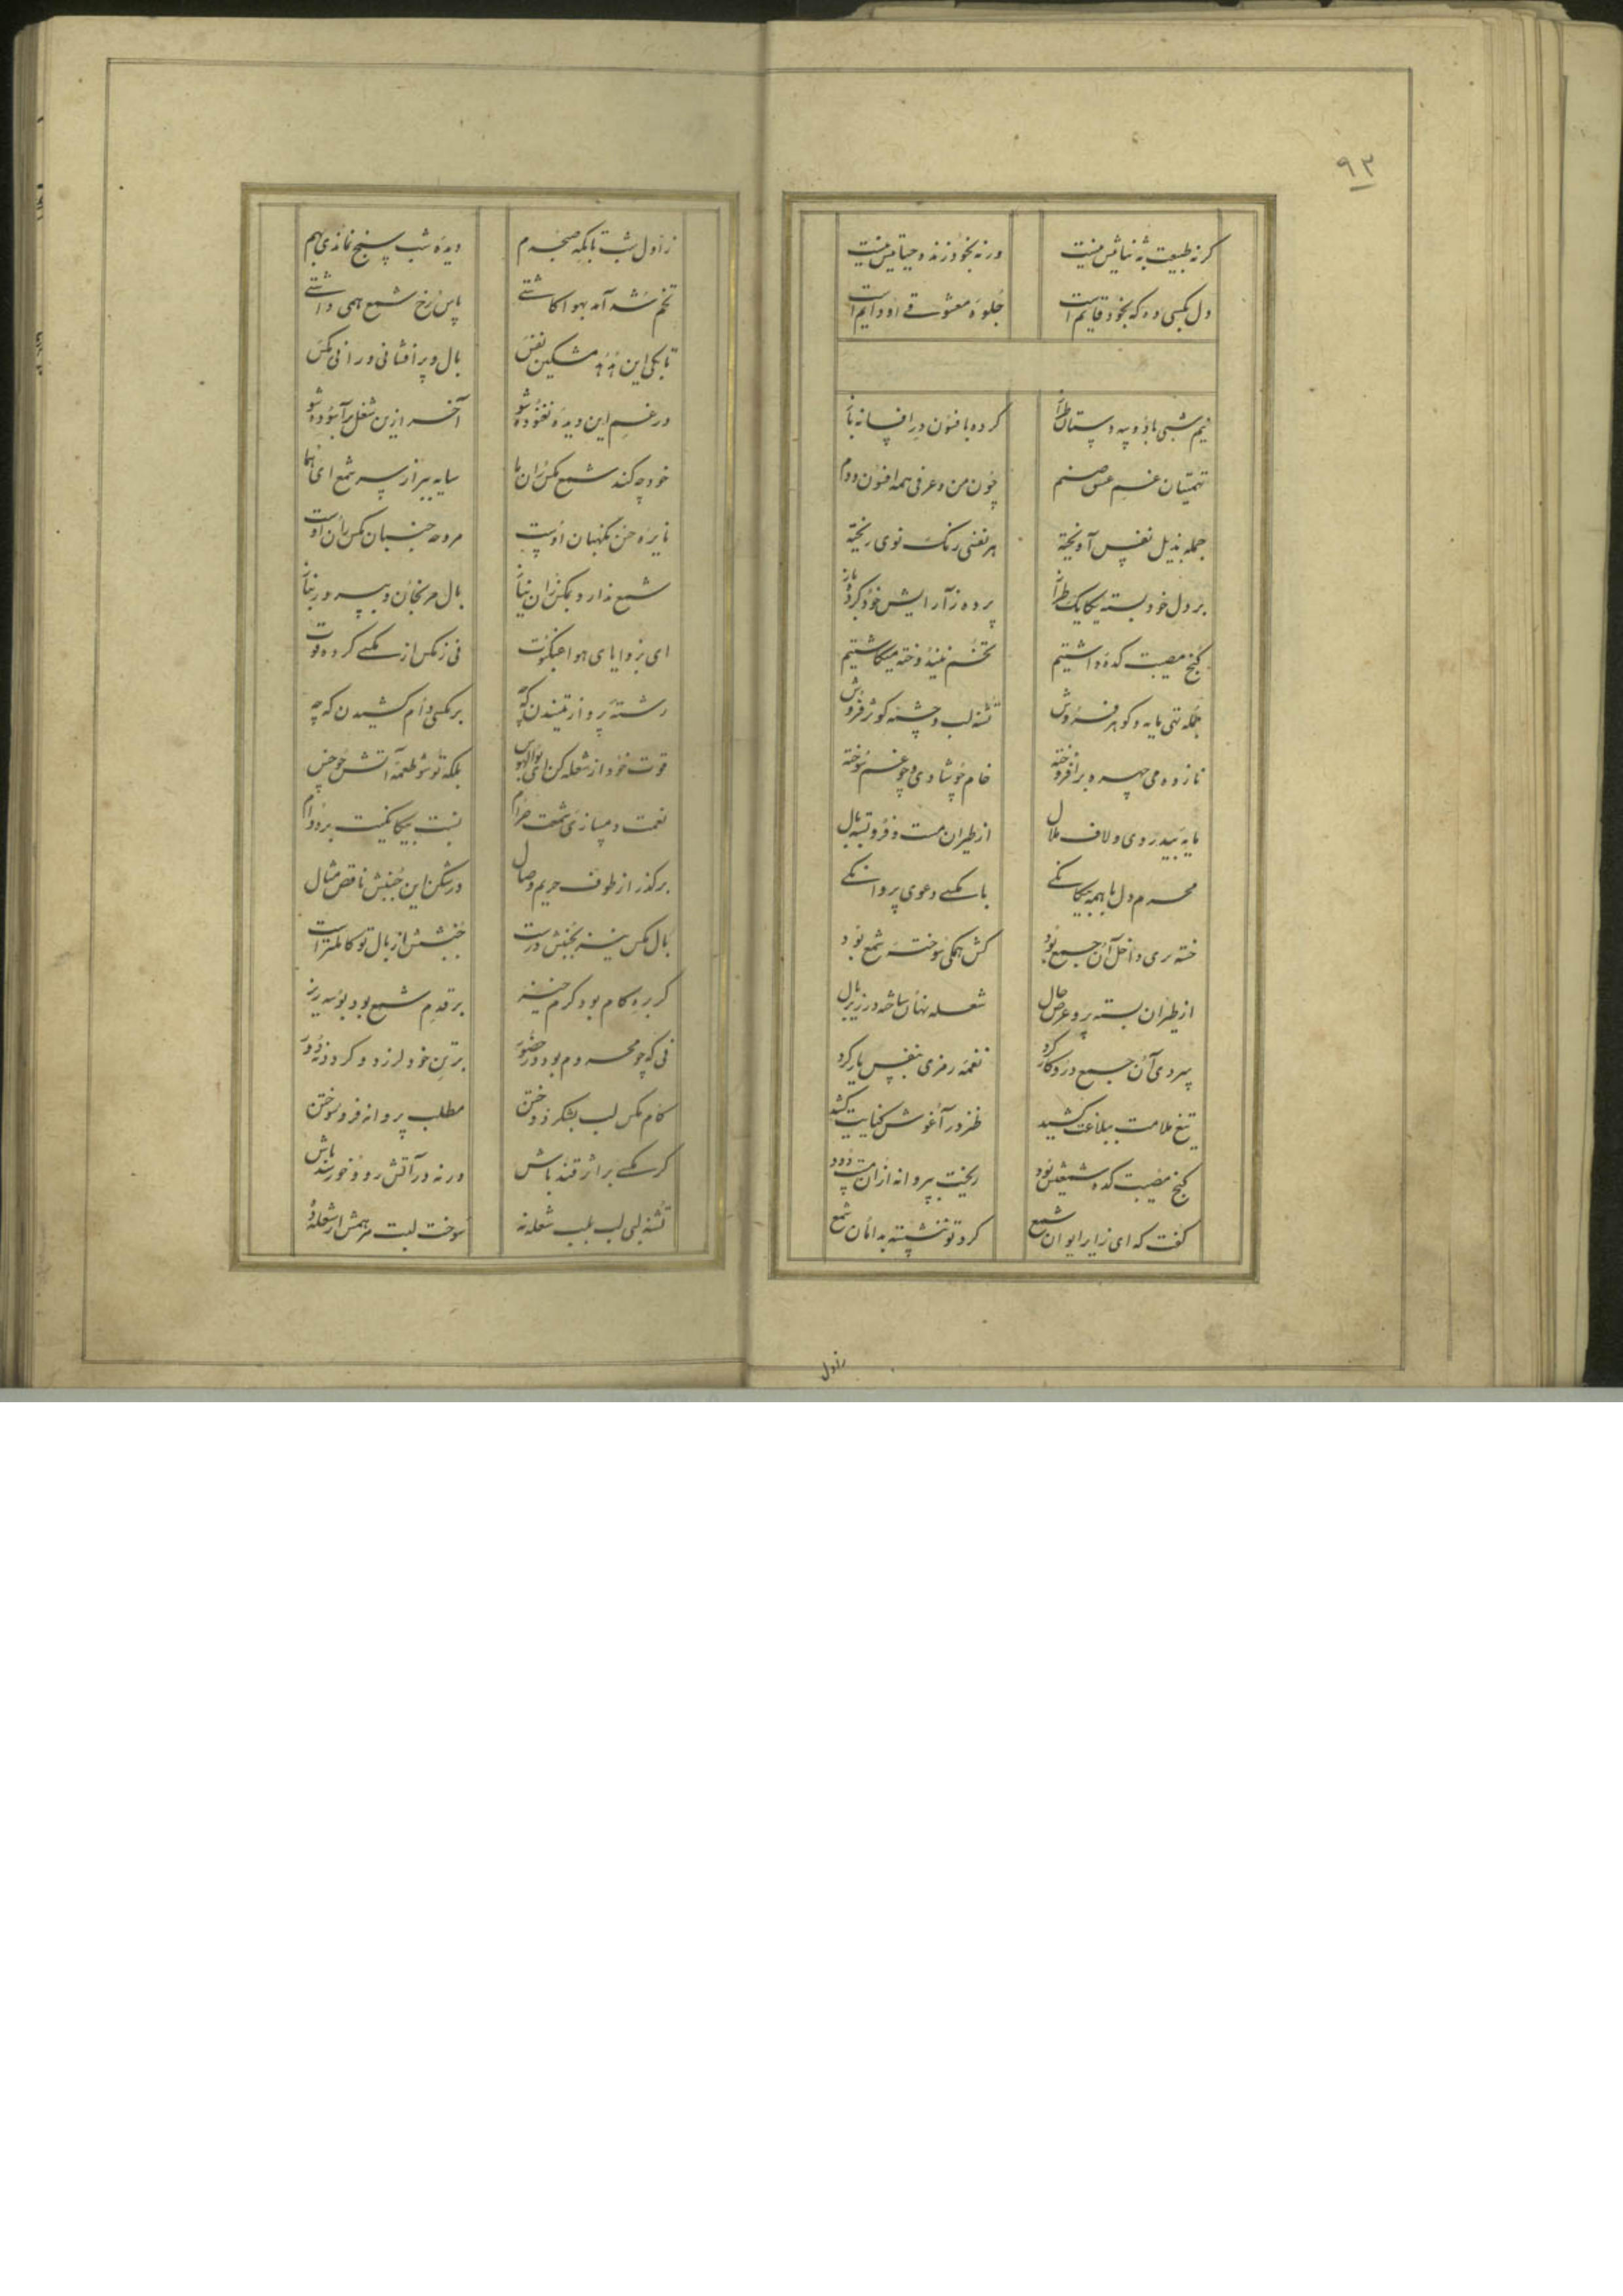 ۹۳
گر نه طبیعت به ثباتیش نیست ورنه بخود زنده حیاتیش نیست
دل بکسی ده که بخود قایم است جلوه معشوقی او دایم است
نیم شبی با دو سه دستان طراز کرده بافسون در افسانه باز
چون من و عرفی همه افسون و دم
جمله بذیل نفس آویخته هر نفسی رنگ نوی ریخته
بر دل خود بسته یکایک طراز پرده ز آرایش خود کرده باز
کنج مصیبت کده داشتیم تخم نیندوخته میکاشتیم
جمله تهی مایه و گوهر فروش تشنه لب و چشمه کوثر فروش
نازده می چهره برافروخته خام چو شادی و چو غم سوخته
مایه بیدردی و لاف ملال از طیران مست و فرو بسته بال
محرم دل با همه بیگانگی با مگسی دعوی پروانگی
خسته دی داخل آن جمع بود کش همگی سوخته شمع بود
از طیران بسته پر و عرض حال شعله نهان ساخته در زیر بال
پیروی آن جمع در و کار کرد نغمه رمزی بنفس یار کرد
تیغ ملامت ببلاغت کشید طنز در آغوش کنایت کشید
کنج مصیبت کده شمعیش بود ریخت پروانه از آن دود
گفت که ای زایر ایوان شمع گرد تو ننشسته بدامان شمع
زاول
زاول شب تا بگه صبحدم دیده شب سنج نماندی بهم
تخم شد آمد بهوا کاشتی پاس رخ شمع همی داشتی
تا بکی این هدهد مشکین نفس بال و پر افشانی و رانی مگس
در غم این دیده نغنوده شو آخر ازین شغل برآسوده شو
خود چه کند شمع مگس ران ما سایه ببر از سر شمع ای هما
نایره حسن نگهبان اوست مروحه جنبان مگس ران اوست
شمع ندارد بمگس ران نیاز بال مرنجان و بپرور بناز
ای بزوایای هوا عنکبوت نی ز مگس از مگسی کرده قوت
رشته پرواز تنیدن که چه بر مگسی دام کشیدن که چه
قوت خود از شعله کن ای بوالهوس بلکه تو شو طعمه آتش چو خس
نعمت دمسازی شمعت حرام نسبت بیگانگیت بر دوام
برگذر از طوف حریم وصال درشکن این جنبش ناقص مثال
بال مگس نیز بجنبش درست جنبشش از بال تو کاملترست
گر بره کام بود گرم خیز بر قدم شمع بود بوسه ریز
نی که چو محروم بود در حضور بر تن خود لرزد و گردد ز دور
کام مگس لب بشکر دوختن مطلب پروانه فرو سوختن
گر مگسی بر اثر قند باش ورنه در آتش رو و خورسند باش
تشنه لبی لب بلب شعله نه سوخت لبت مرهمش از شعله ده